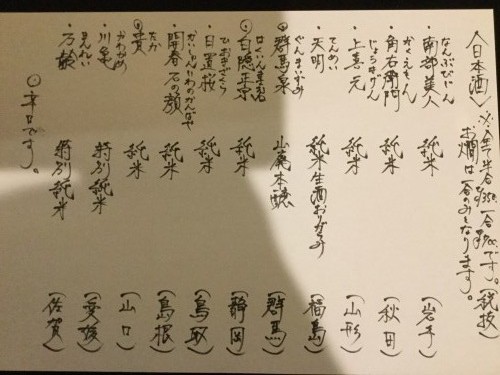 〈日本酒〉 ※全て半合¥350 一合¥700です。(税抜)
お燗は一合のみとなります。
なんぶびじん
・南部美人 純米 (岩手)
かくえもん
・角右衛門 純米 (秋田)
じょうきげん
・上喜元 純米 (山形)
てんめい
・天明 純米生酒おりがらみ (福島)
ぐんまいずみ
⦿群馬泉 山廃本醸 (群馬)
はくいんまさむね
⦿白隠正宗 純米 (静岡)
ひおきざくら
・日置桜 純米 (鳥取)
かいしゅん いわのかんばせ
・開春 石の顔 純米 (島根)
たか
⦿貴 純米 (山口)
かわかめ
・川亀 特別純米 (愛媛)
まんれい
・万齢 特別純米 (佐賀)
⦿辛口です。